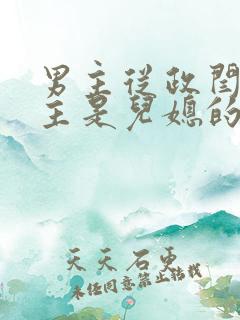 男主從政閨
主是兒媳的
天天石更
未经同意禁止转载